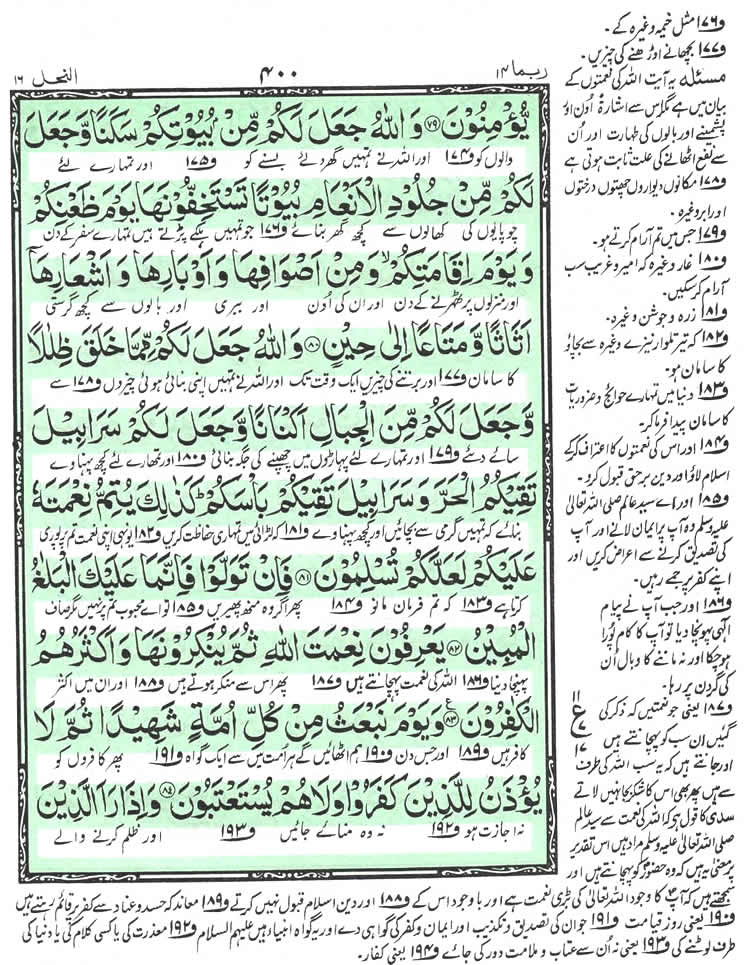 ربما ١٤
٤٠٠
النحل ١٦
يُؤْمِنُوْنَ ﴿۷۹﴾ وَ اللّٰهُ جَعَلَ لَكُمْ مِّنْۢ بُيُوْتِكُمْ سَكَنًا وَّ جَعَلَ
والوں کو و۱۷۴ اور اللہ نے تمہیں گھر دیئے بسنے کو و۱۷۵ اور تمہارے لئے
لَكُمْ مِّنْ جُلُوْدِ الْاَنْعَامِ بُيُوْتًا تَسْتَخِفُّوْنَهَا يَوْمَ ظَعْنِكُمْ
چوپایوں کی کھالوں سے کچھ گھر بنائے و۱۷۶ جو تمہیں ہلکے پڑتے ہیں تمہارے سفر کے دن
وَ يَوْمَ اِقَامَتِكُمْ ۙ وَ مِنْ اَصْوَافِهَا وَ اَوْبَارِهَا وَ اَشْعَارِهَاۤ
اور منزلوں پر ٹھہرنے کے دن اور ان کی اُون اور ببری اور بالوں سے کچھ گرستی
اَثَاثًا وَّ مَتَاعًا اِلٰى حِيْنٍ ﴿۸۰﴾ وَ اللّٰهُ جَعَلَ لَكُمْ مِّمَّا خَلَقَ ظِلٰلًا
کا سامان و۱۷۷ اور برتنے کی چیزیں ایک وقت تک اور اللہ نے تمہیں اپنی بنائی ہوئی چیزوں و۱۷۸ سے
وَّ جَعَلَ لَكُمْ مِّنَ الْجِبَالِ اَكْنَانًا وَّ جَعَلَ لَكُمْ سَرَابِيْلَ
سائے دیئے و۱۷۹ اور تمہارے لئے پہاڑوں میں چھپنے کی جگہ بنائی و۱۸۰ اور تمھارے لئے کچھ پہناوے
تَقِيْكُمُ الْحَرَّ وَ سَرَابِيْلَ تَقِيْكُمْ بَاْسَكُمْ ؕ كَذٰلِكَ يُتِمُّ نِعْمَتَهٗ
بنائے کہ تمہیں گرمی سے بچائیں اور کچھ پہناوے و۱۸۱ کہ لڑائی میں تمہاری حفاظت کریں و۱۸۲ یوں ہی اپنی نعمت تم پر پوری
عَلَيْكُمْ لَعَلَّكُمْ تُسْلِمُوْنَ ﴿۸۱﴾ فَاِنْ تَوَلَّوْا فَاِنَّمَا عَلَيْكَ الْبَلٰغُ
کرتا ہے و۱۸۳ کہ تم فرمان مانو و۱۸۴ پھر اگر وہ منھ پھیریں و۱۸۵ تو اے محبوب تم پر نہیں مگر صاف
الْمُبِيْنُ ﴿۸۲﴾ يَعْرِفُوْنَ نِعْمَتَ اللّٰهِ ثُمَّ يُنْكِرُوْنَهَا وَ اَكْثَرُهُمُ
پہنچا دینا و۱۸۶ اللہ کی نعمت پہچانتے ہیں و۱۸۷ پھر اس سے منکر ہوتے ہیں و۱۸۸ اور ان میں اکثر
الْكٰفِرُوْنَ ﴿۸۳﴾ وَ يَوْمَ نَبْعَثُ مِنْ كُلِّ اُمَّةٍ شَهِيْدًا ثُمَّ لَا
کافر ہیں و۱۸۹ اور جس دن و۱۹۰ ہم اٹھائیں گے ہر امت میں سے ایک گواہ و۱۹۱ پھر کافروں کو
يُؤْذَنُ لِلَّذِيْنَ كَفَرُوْا وَ لَا هُمْ يُسْتَعْتَبُوْنَ ﴿۸۴﴾ وَ اِذَا رَاَ الَّذِيْنَ
نہ اجازت ہو و۱۹۲ نہ وہ منائے جائیں و۱۹۳ اور ظلم کرنے والے
و۱۷۶ مثل خیمہ وغیرہ کے۔
و۱۷۷ بچھانے اوڑھنے کی چیزیں۔
مسئلہ یہ آیت اللہ کی نعمتوں کے
بیان میں ہے مگر اس سے اشارۃً اُون اور
پشمینے اور بالوں کی طہارت اور اُن
سے نفع اٹھانے کی حلت ثابت ہوتی ہے
و۱۷۸ مکانوں دیواروں چھتوں درختوں
اور ابر وغیرہ۔
و۱۷۹ جس میں تم آرام کرتے ہو۔
و۱۸۰ غار وغیرہ کہ امیر و غریب سب
آرام کرسکیں۔
و۱۸۱ زرہ و جوشن وغیرہ۔
و۱۸۲ کہ تیر تلوار نیزے وغیرہ سے بچاؤ
کا سامان ہو۔
و۱۸۳ دنیا میں تمہارے حوائج و ضروریات
کا سامان پیدا فرما کر۔
و۱۸۴ اور اس کی نعمتوں کا اعتراف کرکے
اسلام لاؤ اور دین برحق قبول کرو۔
و۱۸۵ اور اے سید عالم صلی اللہ تعالیٰ
علیہ وسلم وہ آپ پر ایمان لانے اور آپ
کی تصدیق کرنے سے اعراض کریں اور
اپنے کفر پر جمے رہیں۔
و۱۸۶ اور جب آپ نے پیام
الٰہی پہونچا دیا تو آپ کا کام پُورا
ہوچکا اور نہ ماننے کا وبال اُن
کی گردن پر رہا۔
۱۱
ع
۷
۱۷
و۱۸۷ یعنی جو نعمتیں کہ ذکر کی
گئیں ان سب کو پہچانتے ہیں
اور جانتے ہیں کہ یہ سب اللہ کی طرف
سے ہیں پھر بھی اس کا شکر بجا نہیں لاتے
سدی کا قول ہے کہ اللہ کی نعمت سے سید عالم
صلی اللہ تعالیٰ علیہ وسلم مراد ہیں اس تقدیر
پر معنی یہ ہیں کہ وہ حضور کو پہچانتے ہیں اور
سمجھتے ہیں کہ آپ کا وجود اللہ تعالیٰ کی بڑی نعمت ہے اور باوجود اس کے و۱۸۸ اور دین اسلام قبول نہیں کرتے و۱۸۹ معاند کہ حسد و عناد سے کفر پر قائم رہتے ہیں
و۱۹۰ یعنی روز قیامت و۱۹۱ جو ان کی تصدیق و تکذیب اور ایمان و کفر کی گواہی دے اور یہ گواہ انبیاء ہیں علیہم السلام و۱۹۲ معذرت کی یا کسی کلام کی یا دنیا کی
طرف لوٹنے کی و۱۹۳ یعنی نہ اُن سے عتاب و ملامت دور کی جائے و۱۹۴ یعنی کفار۔